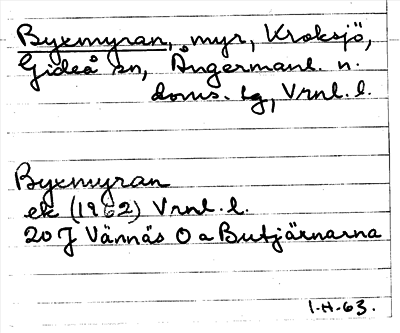 Byxmyran, myr, Kroksjö,
Gideå sn, Ångermanl. n.
doms. lg, Vrnl. l.
Byxmyran
ek (1962) Vrnl. l.
20 J Vännäs O a Butjärnarna
1-H-63.